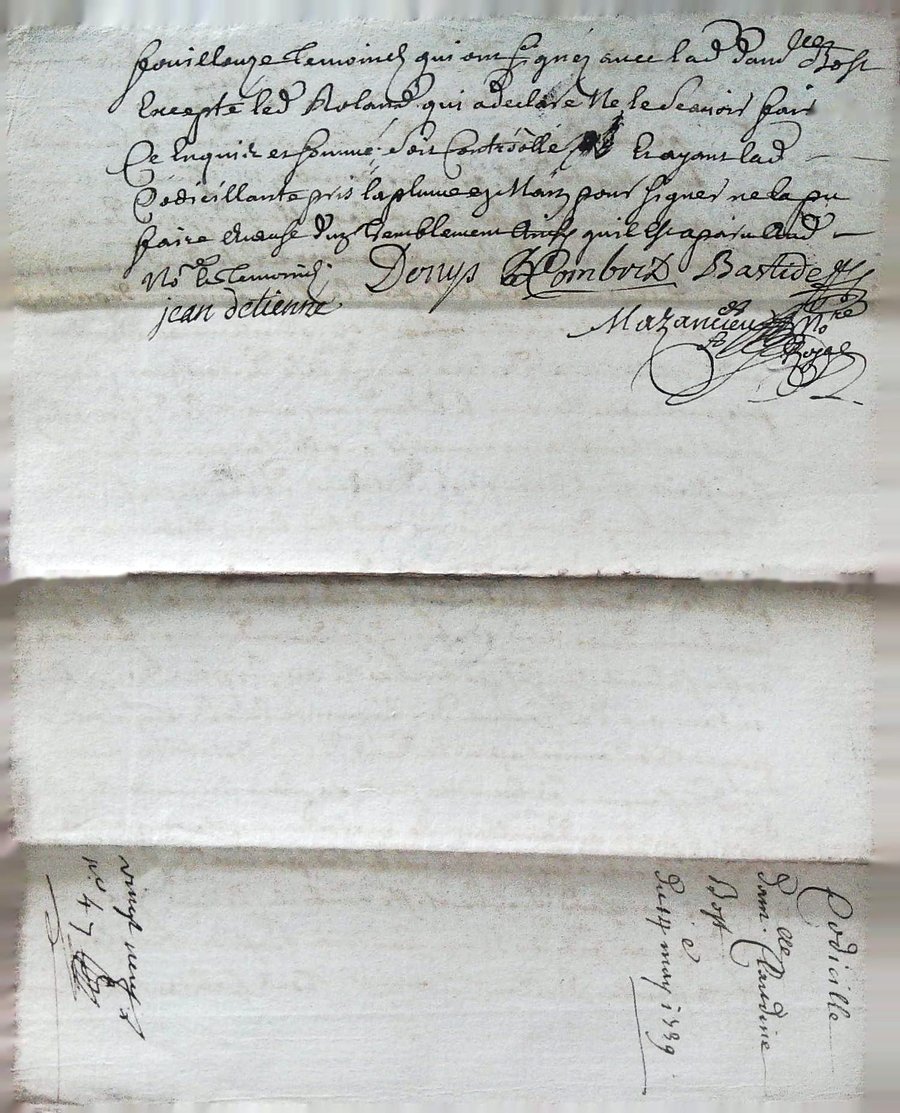 fouillouze temoinch qui ont signez avec lad damlle Bost
Excepté led Roland qui a declaré ne le Scavoir fair
Ce Enquis et sommé. soit Controllé Et ayant lad
Codicillante pris la plume En Main pour signer ne la pu
faire acause d'un Tremblement quil Est aparu aud
Nore & temoinch.
Denys Combrix Bastide
jean detienne
Mazancieu Nore Royal
Codicille
de damlle Claudine
Bost
du 14e may 1739
vingt neuf s
no. 47